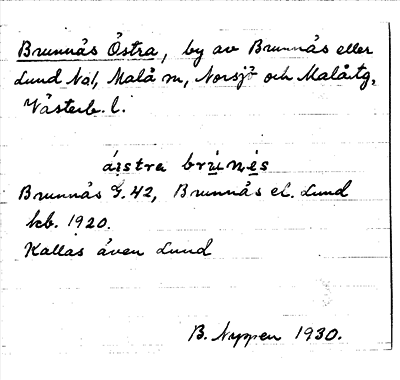 Brunnås Östra, by av Brunnås eller
Lund No1, Malå sn, Norsjö och Malå tg,
Västerb. l.
åistra brùnė́s
Brunnås G. 42, Brunnås el. Lund
kb. 1920.
Kallas även Lund
B. Nyppen 1930.